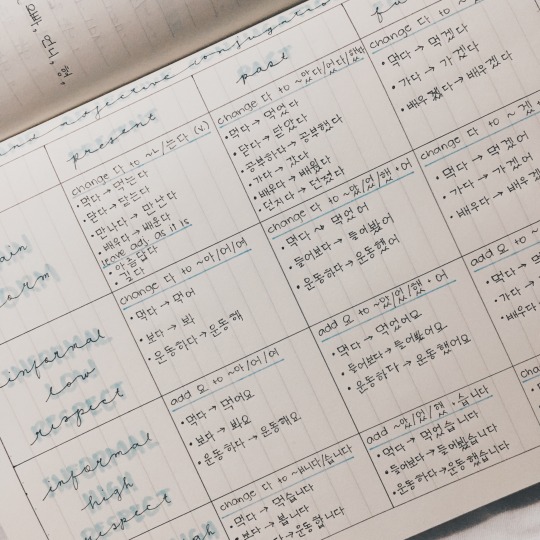 오빠, 언니, 형,
and adjective conjugation
present
past
change 다 to ~ㄴ/는다 (v.)
• 먹다 → 먹는다
• 닫다 → 닫는다
• 만나다 → 만난다
• 배우다 → 배운다
leave adj. as it is
• 아름답다
• 길다
change 다 to ~았다/었다/했다
• 먹다 → 먹었다
• 닫다 → 닫았다
• 공부하다 → 공부했다
• 가다 → 갔다
• 배우다 → 배웠다
• 던지다 → 던졌다
change 다 to ~겠다
• 먹다 → 먹겠다
• 가다 → 가겠다
• 배우다 → 배우겠다
informal
low
respect
change 다 to ~아/어/여
• 먹다 → 먹어
• 보다 → 봐
• 운동하다 → 운동해
change 다 to ~았/었/했 + 어
• 먹다 → 먹었어
• 들어보다 → 들어봤어
• 운동하다 → 운동했어
change 다 to ~겠
• 먹다 → 먹겠어
• 가다 → 가겠어
• 배우다 → 배우겠
informal
high
respect
add 요 to ~아/어/여
• 먹다 → 먹어요
• 보다 → 봐요
• 운동하다 → 운동해요
add 요 to ~았/었/했 + 어
• 먹다 → 먹었어요
• 들어보다 → 들어봤어요
• 운동하다 → 운동했어요
add 요 to ~
• 먹다 →
• 가다 →
• 배우다
change 다 to ~ㅂ니다/습니다
• 먹다 → 먹습니다
• 보다 → 봅니다
• 운동하다 → 운동합니다
add ~았/었/했 + 습니다
• 먹다 → 먹었습니다
• 들어보다 → 들어봤습니다
• 운동하다 → 운동했습니다